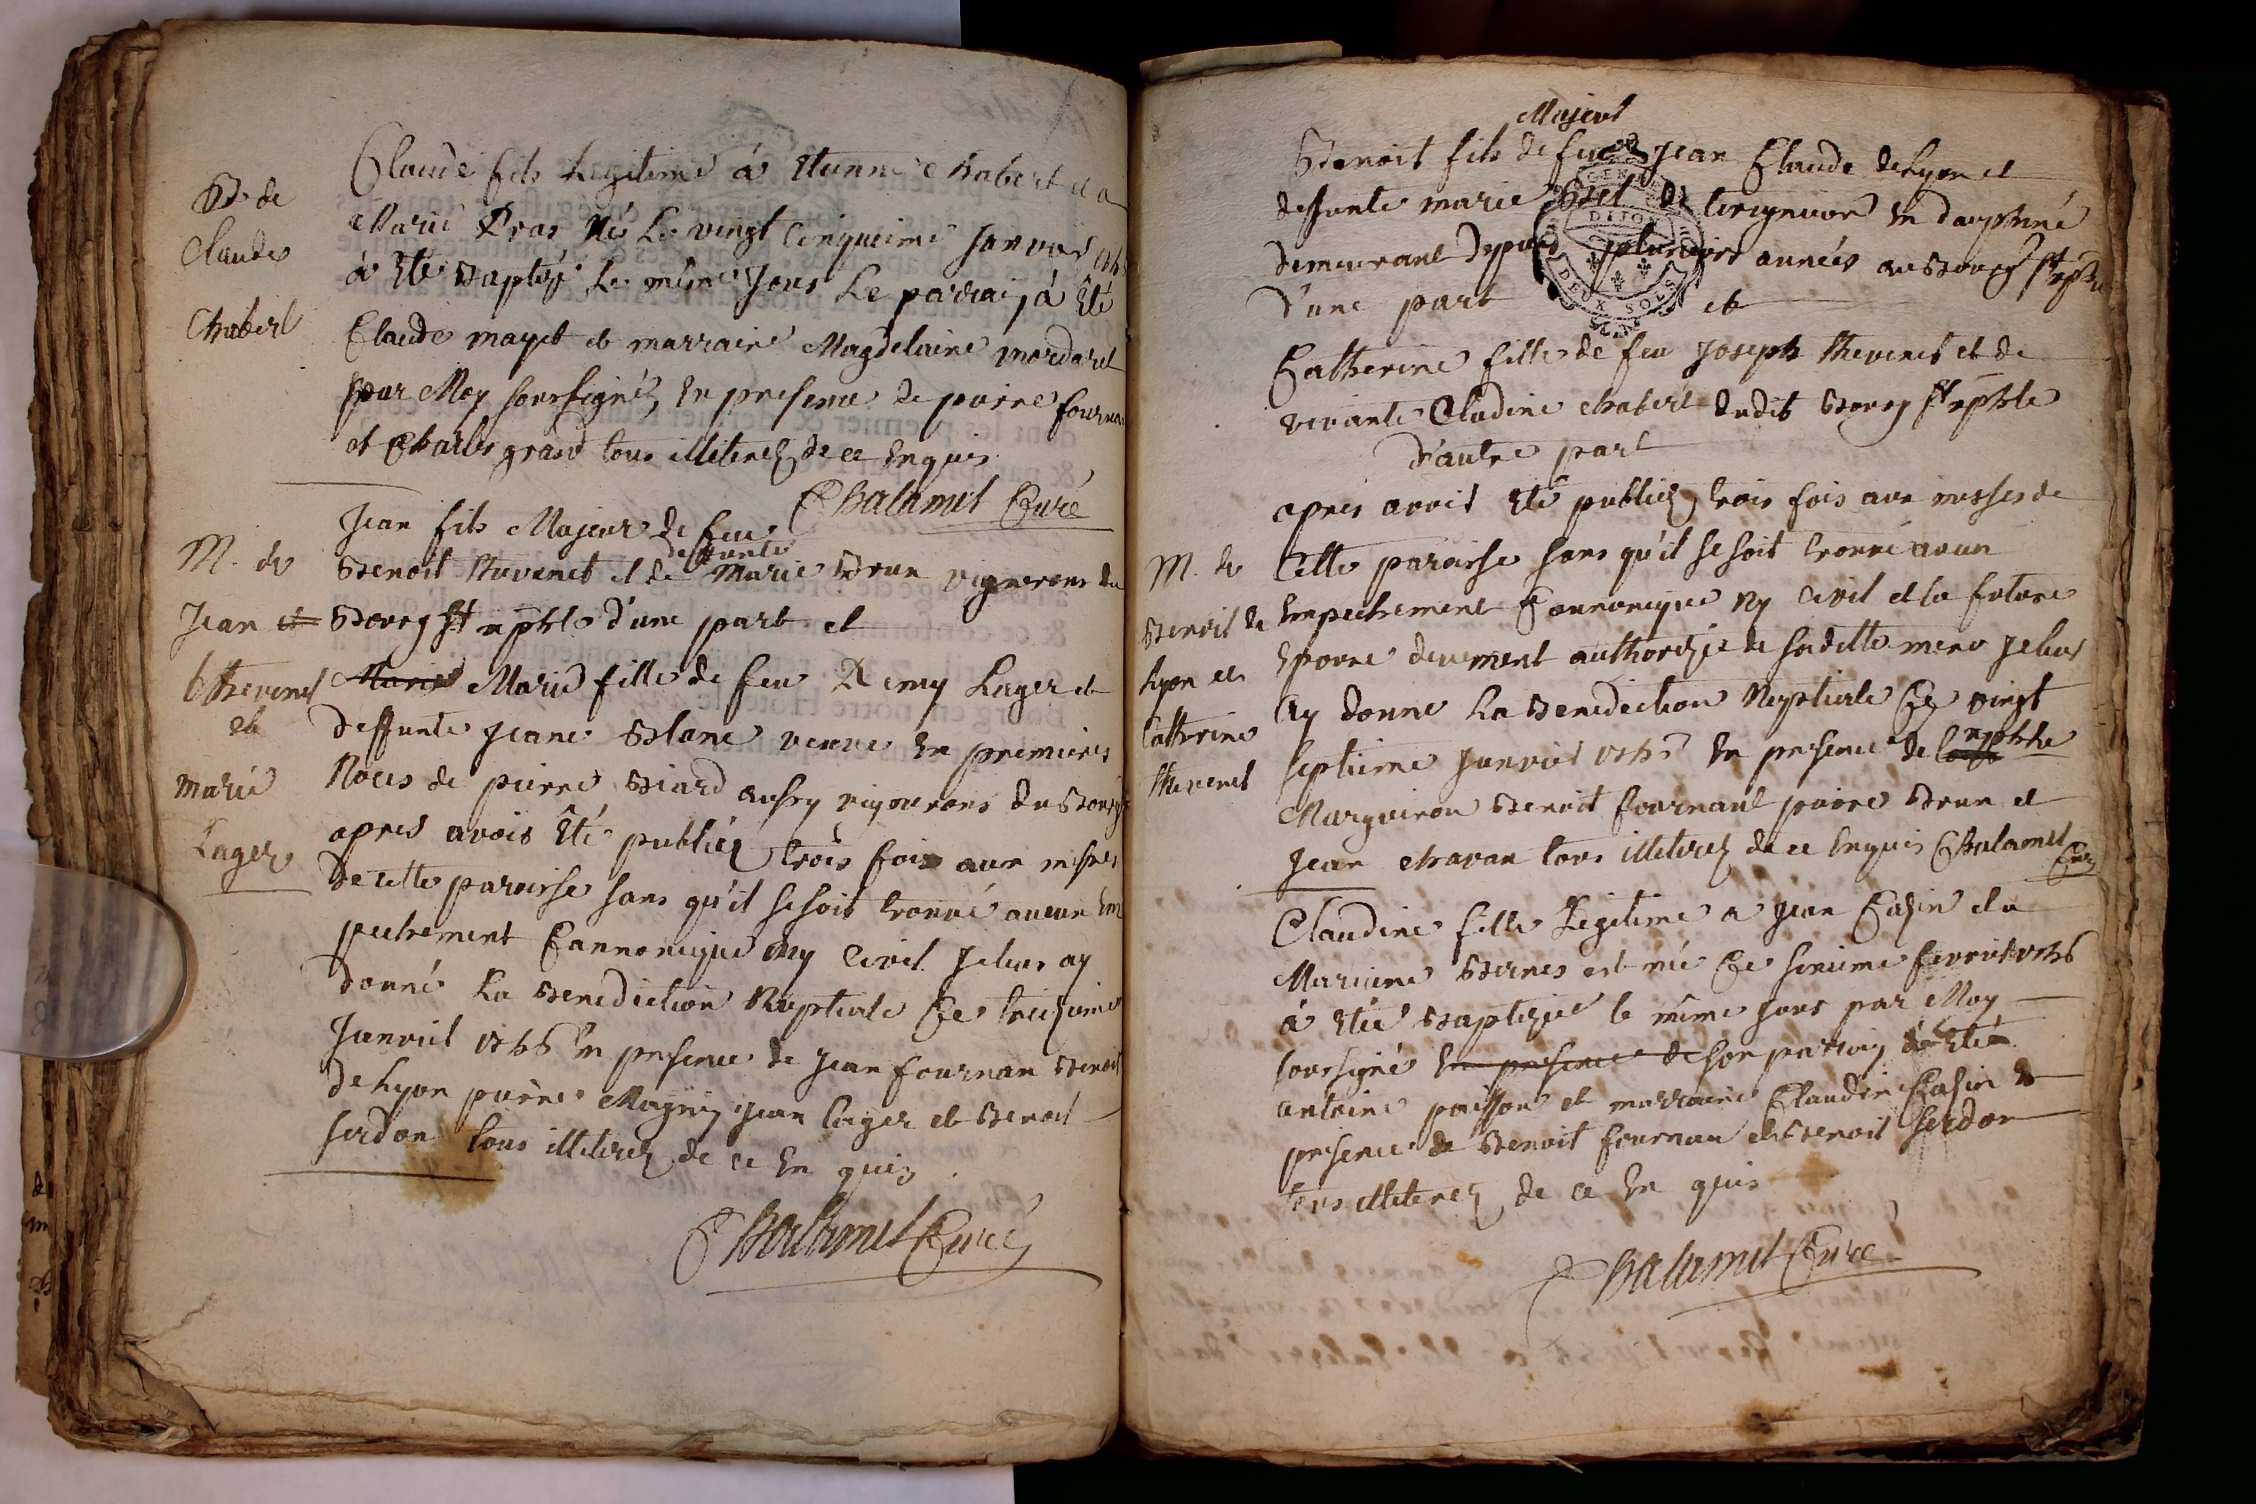 B. de
Claude
Chabert
Claude fils Legitime à Etienne Chabert et a
Marie Pras Né Le vingt cinquieme Janvier
à Eté Baptisé Le même Jour Le parrain à Eté
Claude mayet et marraine Magdelaine mordaret
par Moy soussigné, En presence de pierre fournan
et Charles grand tous illiterez de ce Enquis
Chalamel Curé
M. de
Jean et
thevenet
et
marie
Lager
Jean fils Majeur de feu
deffunte
Benoit thevenet et de Marie Brun vignerons du
Bourg St xphle d'une part et
Marie Marie fille de feu Remy Lager et
deffunte Jeane Blanc veuve En premieres
Noces de pierre Biard aussy vignerons du Bourg
apres avoir Eté publiez trois fois aux messes
de cette paroisse sans qu'il se soit trouvé aucun Em
pechement Cannonique ny Civil Je leur ay
donné La Benediction Nuptiale Ce treizieme
Janvier 1766 En presence de Jean fournan Benoit
de Lyon pierre Magnin Jean Lager et Benoit
serdon tous illiterez de ce En quis
Chalamel Curé
Majeur
Benoit fils de feu Jean Claude de Lyon et
deffunte marie de En dauphiné
demeurant depuis plusieurs années au Bourg St xphle
d'une part et
GENER
DIJON
DEUX SOLS
Catherine fille de feu Joseph thevenet et de
vivante Cladine chabert dudit Bourg St xphle
d'autre part
M. de
Benoit de
Lyon et
Catherine
thevenet
apres avoir Eté publiez trois fois aux messes de
Cette paroisse sans qu'il se soit trouvé aucun
Empechement Cannonique Ny Civil et la future
Epouse deuement authorizée de sa ditte mere Je leur
ay donné La Benediction Nuptiale Ce vingt
septieme Janvier 1766 En presence de xphle
Marguiron Benoit fournant pierre Brun et
Jean chavan tous illiterez de ce Enquis Chalamel
Curé
Claudine fille Legitime a Jean Casin et a
Mariane Bernes est née Ce sixieme fevrier 1766
à Eté Baptizée le même Jour par Moy
soussigné En presence de son parrain à Eté
antoine poisson et marraine Claudine Casin En
presence de Benoit fournan et Benoit serdon
tous illiterez de ce En quis
Chalamel Curé